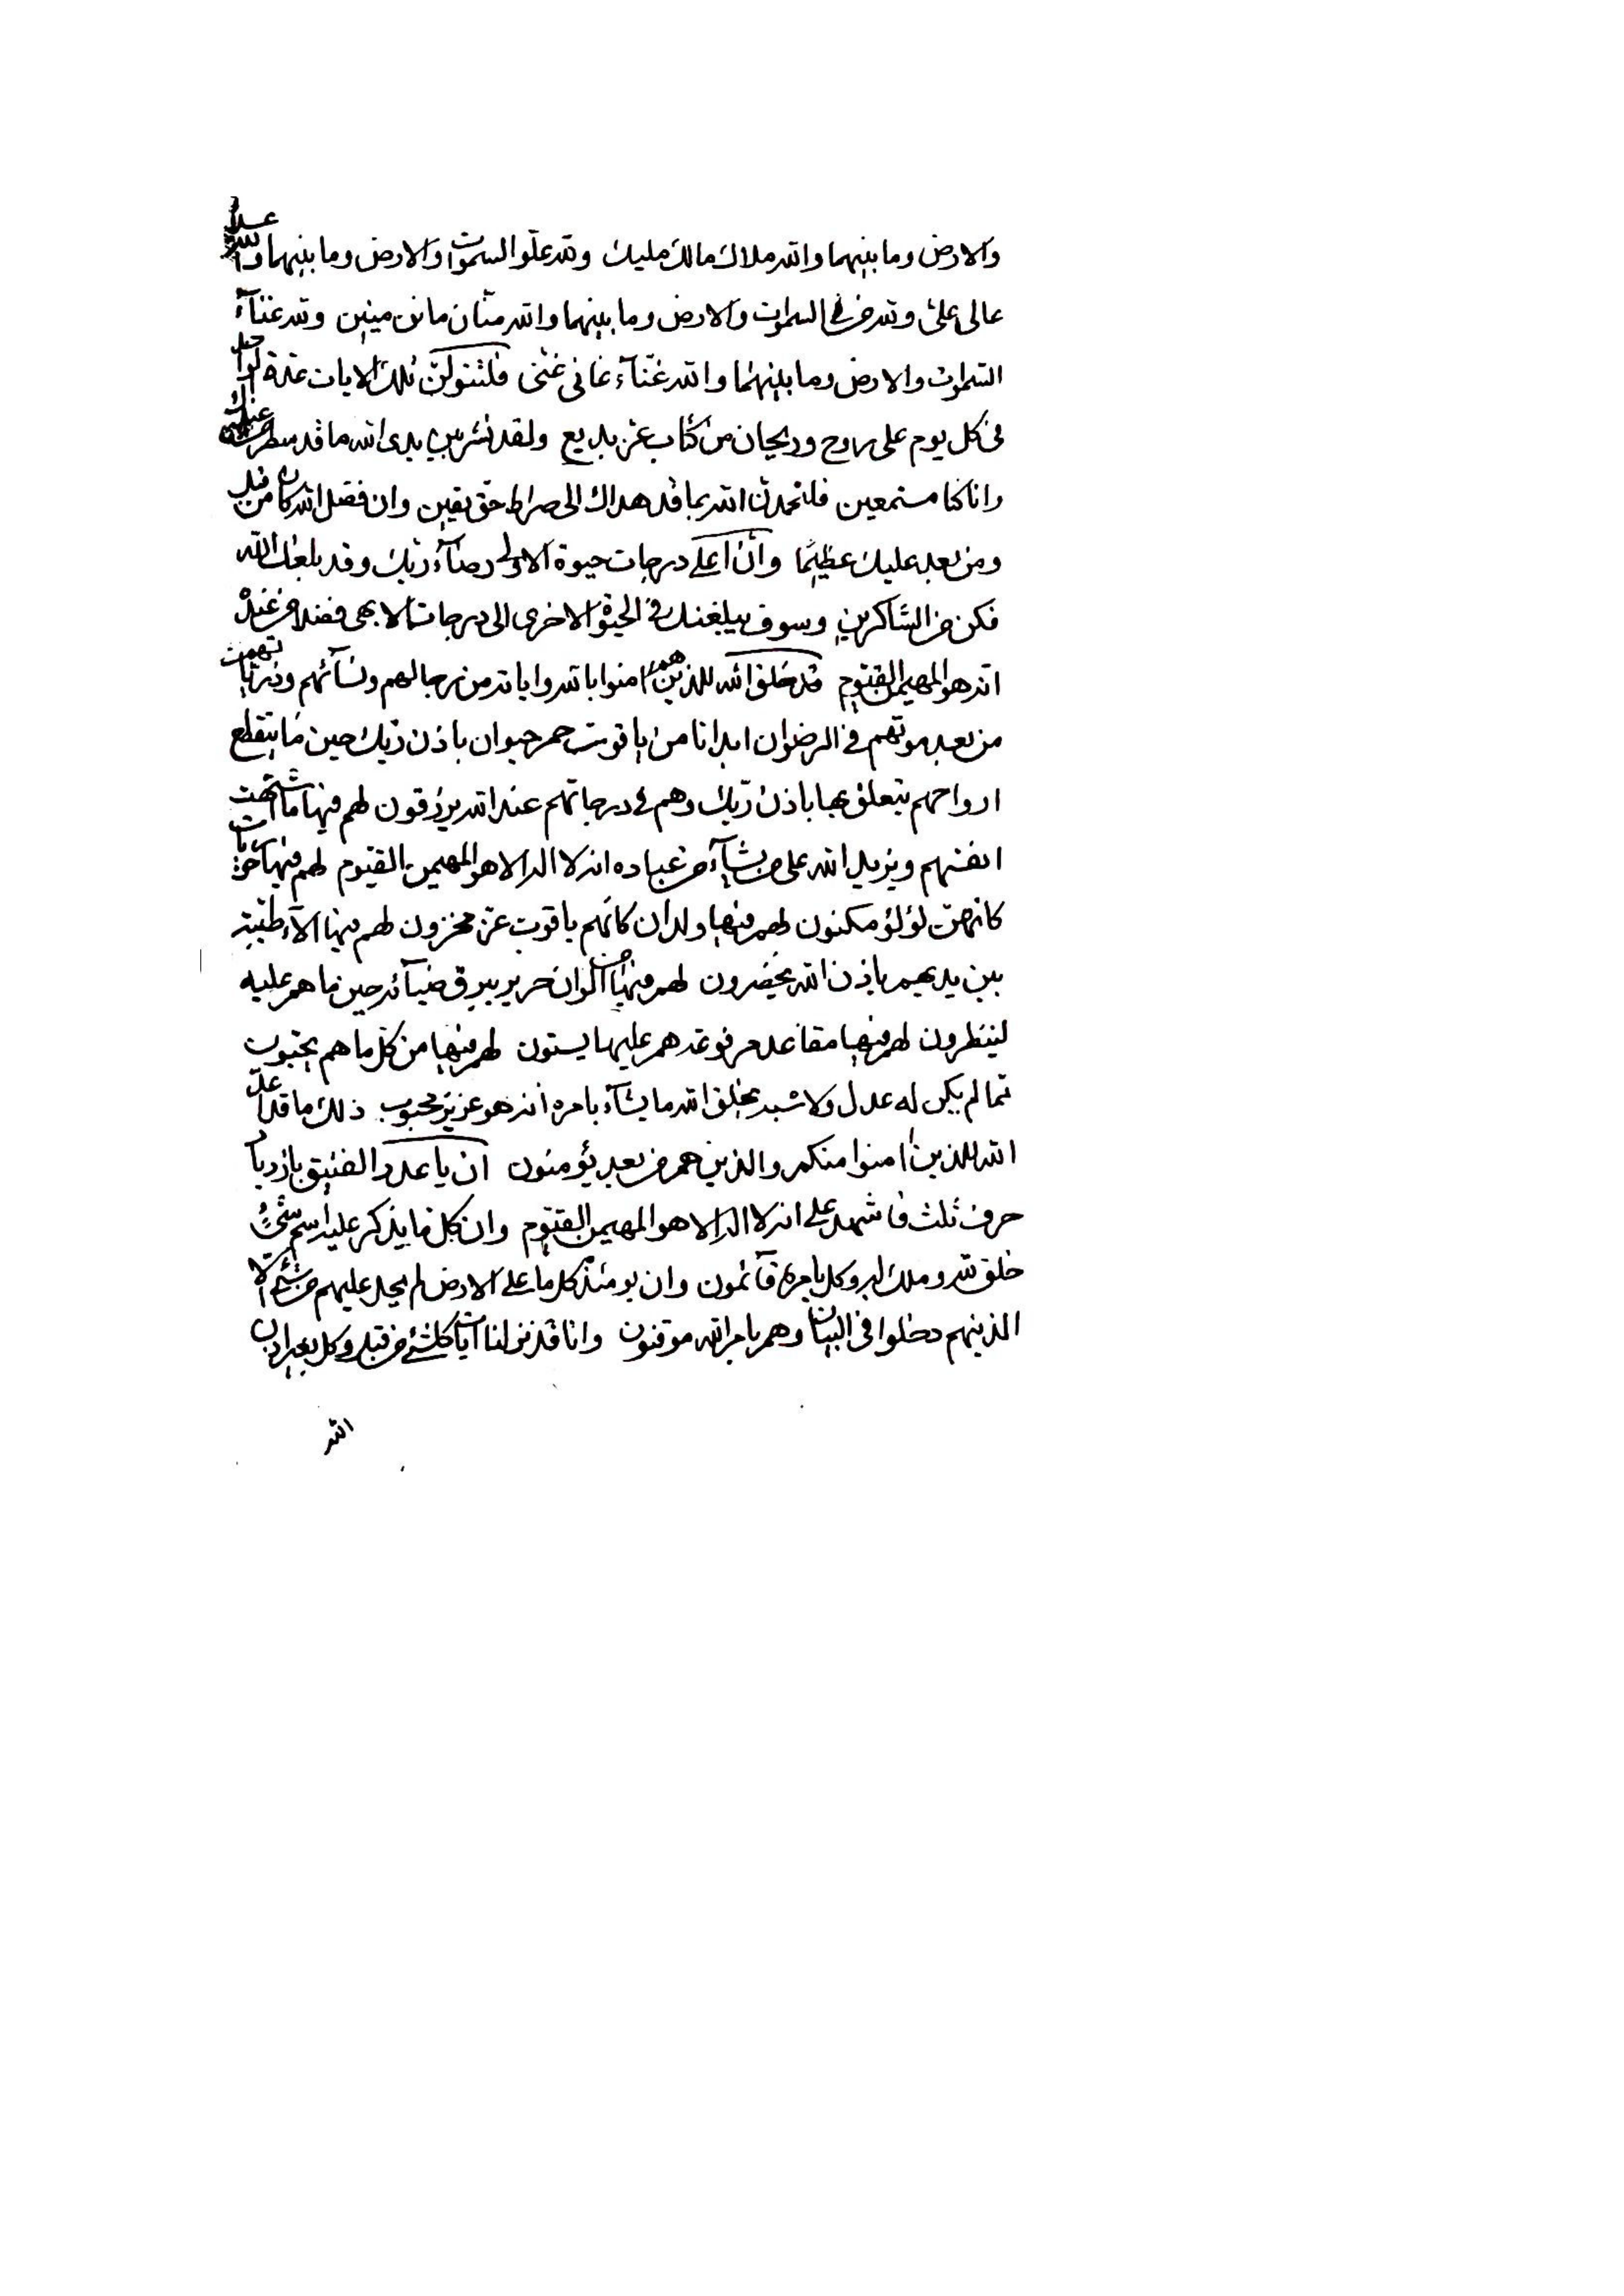 والارض وما بينهما والله ملاك مالك مليك ولله علو السموات والارض وما بينهما والله علاء
عالى على ولله من في السموات والارض وما بينهما والله منان مانن منين ولله غناء
السموات والارض وما بينهما والله غناء غانى غنى فلتتلون تلك الايات عدة الواحد
فى كل يوم على روح وريحان من كتاب عز بديع ولقد نشر بين يدى الله ما قد سطر من عندك
وانا كنا مستمعين فلتحمدن الله بما قد هداك الى صراط حق يقين وان فضل الله كان من قبل
ومن بعد عليك عظيما وان اعلى درجات حيوة الاولى رضاء ربك وقد بلغك الله
فكن من الشاكرين وسوف يبلغنك فى الحيوة الاخرى الى درجات الابهى فضلا من عنده
انه هو المهيمن القيوم قد خلق الله للذين هم امنوا بالله واياته من رجالهم ونسائهم وذرياتهم
من بعد موتهم فى الرضوان ابدانا من ياقوت حمر حيوان باذن ربك حين ما ينقطع
ارواحهم يتعلق بها باذن ربك وهم فى درجاتهم عند الله يرزقون لهم فيها ما اشتهت
انفسهم ويزيد الله على من يشاء من عباده انه لا اله الا هو المهيمن القيوم لهم فيها
كانهن لؤلؤ مكنون لهم فيها ولدان كانهم ياقوت عز مخزون لهم فيها الاء طيبة
بين يديهم باذن الله يحضرون لهم فيها من الوان حرير يبرق ضيائه حين ما هم عليه
لينظرون لهم فيها مقاعد مرفوعة هم عليها يستون لهم فيها من كل ما هم يحبون
مما لم يكن له عدل ولا شبه يخلق الله ما يشاء بامره انه هو عزيز محبوب ذلك ما قد اعد
الله للذين امنوا منكم والذين هم من بعد يؤمنون ان يا عدد الضيق بازدياد
حرف ثلث فاشهد على انه لا اله الا هو المهيمن القيوم وان كل ما يذكر عليه اسم شئ
خلق لله وملك له وكل بامره قائمون وان يومئذ كل ما على الارض لم يحل عليهم من شئ الا
الذينهم دخلوا فى البيان وهم بامر الله موقنون وانا قد نزلنا ايات كلشئ من قبل وكل
الله